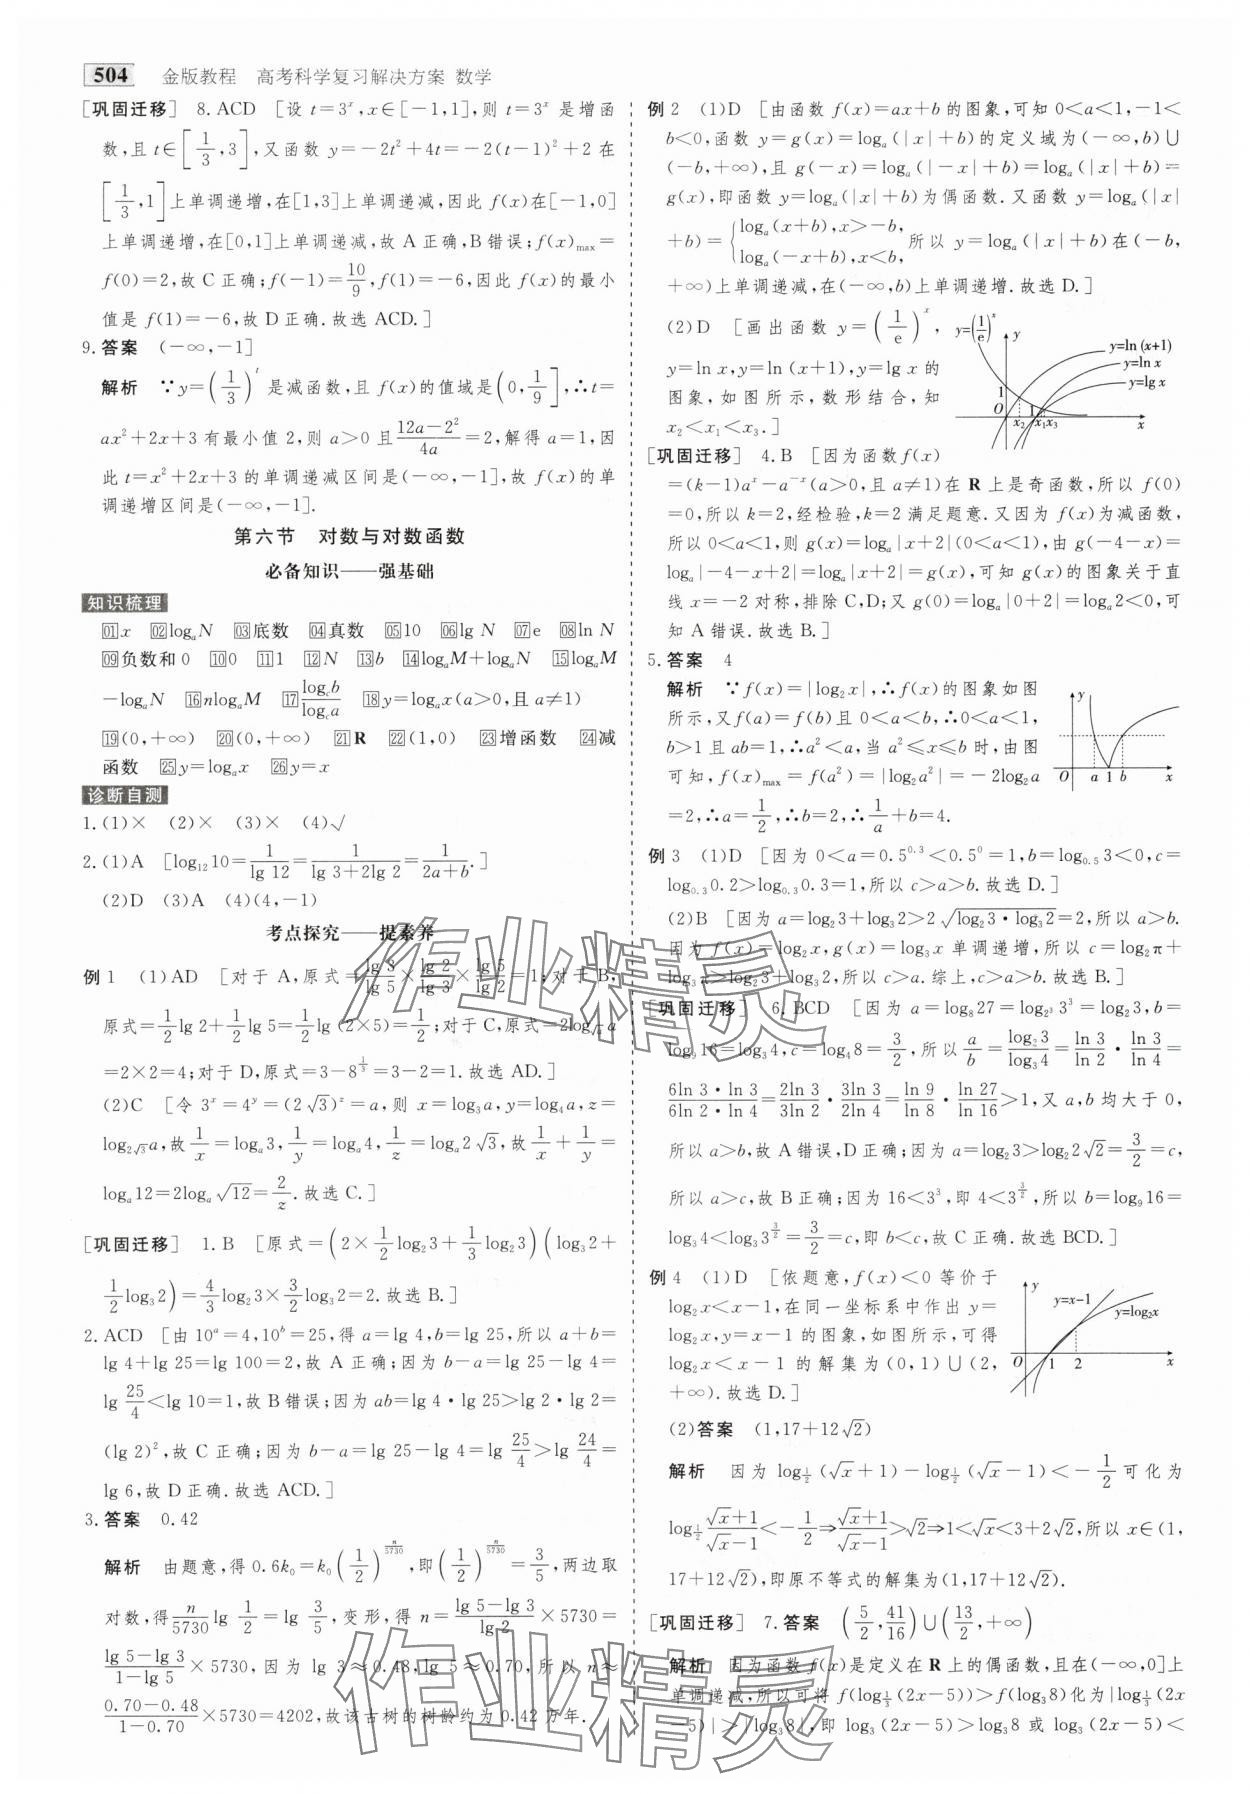 504 金版教程 高考科学复习解决方案 数学
[巩固迁移] 8.ACD [设 t=3^x,x∈[-1,1],则 t=3^x 是增函
数,且 t∈[1/3,3],又函数 y=-2t²+4t=-2(t-1)²+2 在
[1/3,1]上单调递增,在[1,3]上单调递减,因此 f(x)在[-1,0]
上单调递增,在[0,1]上单调递减,故 A 正确,B 错误;f(x)max=
f(0)=2,故 C 正确;f(-1)=10/9,f(1)=-6,因此 f(x)的最小
值是 f(1)=-6,故 D 正确.故选 ACD.]
9.答案 (-∞,-1]
解析 ∵y=(1/3)^t 是减函数,且 f(x)的值域是(0,1/9],∴t=
ax²+2x+3 有最小值 2,则 a>0 且(12a-2²)/4a=2,解得 a=1,因
此 t=x²+2x+3 的单调递减区间是(-∞,-1],故 f(x)的单
调递增区间是(-∞,-1].
第六节 对数与对数函数
必备知识——强基础
知识梳理
01 x 02 logₐN 03 底数 04 真数 05 10 06 lg N 07 e 08 ln N
09 负数和 0 10 0 11 1 12 N 13 b 14 logₐM+logₐN 15 logₐM
-logₐN 16 nlogₐM 17 log_c b/log_c a 18 y=logₐx(a>0,且 a≠1)
19 (0,+∞) 20 (0,+∞) 21 R 22 (1,0) 23 增函数 24 减
函数 25 y=logₐx 26 y=x
诊断自测
1.(1)× (2)× (3)× (4)√
2.(1)A [log₁₂10=1/lg 12=1/(lg 3+2lg 2)=1/(2a+b).]
(2)D (3)A (4)(4,-1)
考点探究——提素养
例 1 (1)AD [对于 A,原式=lg 3/lg 5×lg 2/lg 3×lg 5/lg 2=1;对于 B,
原式=1/2 lg 2+1/2 lg 5=1/2 lg (2×5)=1/2;对于 C,原式=2log_√a a
=2×2=4;对于 D,原式=3-8^(1/3)=3-2=1.故选 AD.]
(2)C [令 3^x=4^y=(2√3)^z=a,则 x=log₃a,y=log₄a,z=
log_2√3 a,故 1/x=logₐ3,1/y=logₐ4,1/z=logₐ2√3,故 1/x+1/y=
logₐ12=2logₐ√12=2/z.故选 C.]
[巩固迁移] 1.B [原式=(2×1/2 log₂3+1/3 log₂3)(log₃2+
1/2 log₃2)=4/3 log₂3×3/2 log₃2=2.故选 B.]
2.ACD [由 10^a=4,10^b=25,得 a=lg 4,b=lg 25,所以 a+b=
lg 4+lg 25=lg 100=2,故 A 正确;因为 b-a=lg 25-lg 4=
lg 25/4<lg 10=1,故 B 错误;因为 ab=lg 4·lg 25>lg 2·lg 8=
(lg 2)²,故 C 正确;因为 b-a=lg 25-lg 4=lg 25/4>lg 24/4=
lg 6,故 D 正确.故选 ACD.]
3.答案 0.42
解析 由题意,得 0.6k₀=k₀(1/2)^(n/5730),即(1/2)^(n/5730)=3/5,两边取
对数,得 n/5730 lg 1/2=lg 3/5,变形,得 n=(lg 5-lg 3)/lg 2×5730=
(lg 5-lg 3)/(1-lg 5)×5730,因为 lg 3≈0.48,lg 5≈0.70,所以 n≈
(0.70-0.48)/(1-0.70)×5730=4202,故该古树的树龄约为 0.42 万年.
例 2 (1)D [由函数 f(x)=ax+b 的图象,可知 0<a<1,-1<
b<0,函数 y=g(x)=logₐ(|x|+b)的定义域为(-∞,b)∪
(-b,+∞),且 g(-x)=logₐ(|-x|+b)=logₐ(|x|+b)=
g(x),即函数 y=logₐ(|x|+b)为偶函数.又函数 y=logₐ(|x|
+b)={logₐ(x+b),x>-b, logₐ(-x+b),x<b, 所以 y=logₐ(|x|+b)在(-b,
+∞)上单调递减,在(-∞,b)上单调递增.故选 D.]
(2)D [画出函数 y=(1/e)^x,
y=ln x,y=ln (x+1),y=lg x 的
图象,如图所示,数形结合,知
x₂<x₁<x₃.]
y=(1/e)^x y y=ln (x+1) y=ln x y=lg x 1 O x₂ 1 x₁ x₃ x
[巩固迁移] 4.B [因为函数 f(x)
=(k-1)a^x-a^-x(a>0,且 a≠1)在 R 上是奇函数,所以 f(0)
=0,所以 k=2,经检验,k=2 满足题意.又因为 f(x)为减函数,
所以 0<a<1,则 g(x)=logₐ|x+2|(0<a<1),由 g(-4-x)=
logₐ|-4-x+2|=logₐ|x+2|=g(x),可知 g(x)的图象关于直
线 x=-2 对称,排除 C,D;又 g(0)=logₐ|0+2|=logₐ2<0,可
知 A 错误.故选 B.]
5.答案 4
解析 ∵f(x)=|log₂x|,∴f(x)的图象如图
所示,又f(a)=f(b)且 0<a<b,∴0<a<1,
b>1 且 ab=1,∴a²<a,当 a²≤x≤b 时,由图
可知,f(x)max=f(a²)=|log₂a²|=-2log₂a
=2,∴a=1/2,∴b=2,∴1/a+b=4.
y O a 1 b x
例 3 (1)D [因为 0<a=0.5^0.3<0.5^0=1,b=log_0.5 3<0,c=
log_0.3 0.2>log_0.3 0.3=1,所以 c>a>b.故选 D.]
(2)B [因为 a=log₂3+log₃2>2√(log₂3·log₃2)=2,所以 a>b.
因为 f(x)=log₂x,g(x)=log₃x 单调递增,所以 c=log₂π+
log₃π>log₂3+log₃2,所以 c>a.综上,c>a>b.故选 B.]
[巩固迁移] 6.BCD [因为 a=log₈27=log_2³ 3³=log₂3,b=
log₉16=log₃4,c=log₄8=3/2,所以 a/b=log₂3/log₃4=ln 3/ln 2·ln 3/ln 4=
6ln 3·ln 3/6ln 2·ln 4=2ln 3/3ln 2·3ln 3/2ln 4=ln 9/ln 8·ln 27/ln 16>1,又 a,b 均大于 0,
所以 a>b,故 A 错误,D 正确;因为 a=log₂3>log₂2√2=3/2=c,
所以 a>c,故 B 正确;因为 16<3³,即 4<3^(3/2),所以 b=log₉16=
log₃4<log₃3^(3/2)=3/2=c,即 b<c,故 C 正确.故选 BCD.]
例 4 (1)D [依题意,f(x)<0 等价于
log₂x<x-1,在同一坐标系中作出 y=
log₂x,y=x-1 的图象,如图所示,可得
log₂x<x-1 的解集为(0,1)∪(2,
+∞).故选 D.]
y y=x-1 y=log₂x O 1 2 x
(2)答案 (1,17+12√2)
解析 因为 log_1/2 (√x+1)-log_1/2 (√x-1)<-1/2 可化为
log_1/2 (√x+1)/(√x-1)<-1/2⇒(√x+1)/(√x-1)>√2⇒1<√x<3+2√2,所以 x∈(1,
17+12√2),即原不等式的解集为(1,17+12√2).
[巩固迁移] 7.答案 (5/2,41/16)∪(13/2,+∞)
解析 因为函数 f(x)是定义在 R 上的偶函数,且在(-∞,0]上
单调递减,所以可将 f(log_1/3 (2x-5))>f(log₃8)化为|log_1/3 (2x
-5)|>|log₃8|,即 log₃(2x-5)>log₃8 或 log₃(2x-5)<
作业精灵
作业精灵